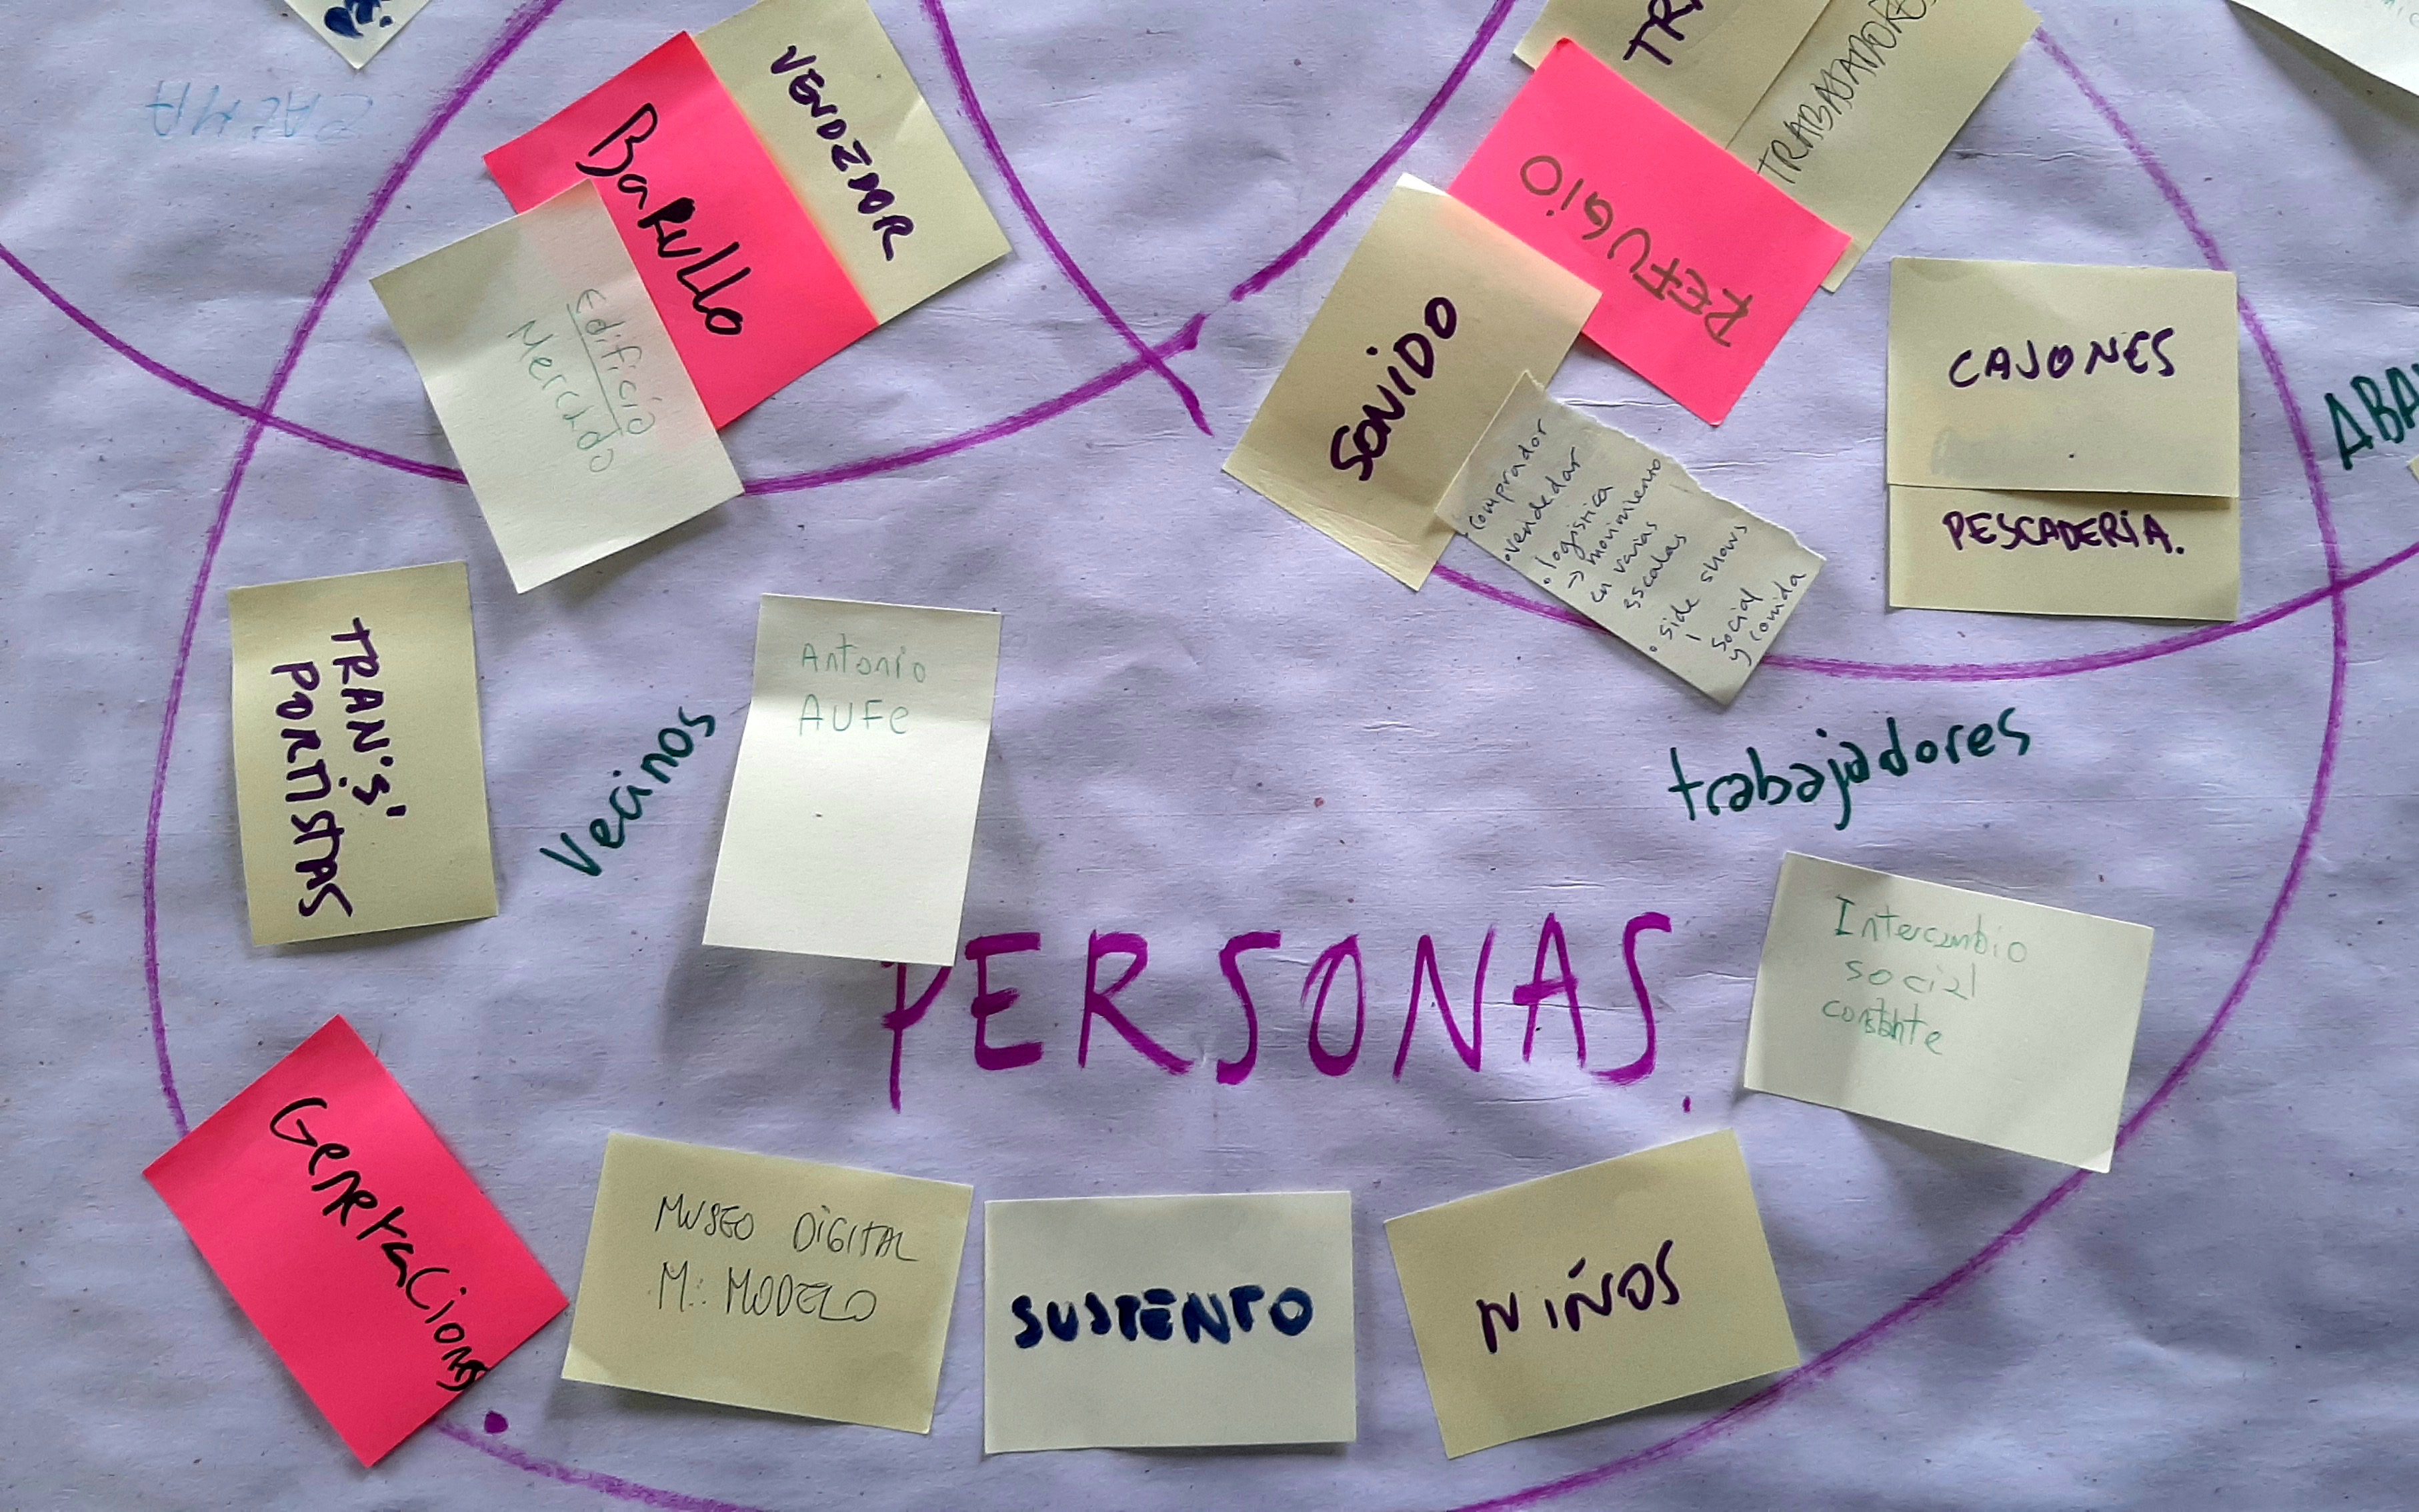 VENDEDOR
BaRullo
Edificio
Mercado
TRABAJADORES
REFUGIO
SONIDO
. comprador
. vendedar
. logistica
-> movimiento
en varias
escalas
. side shows
social
y comida
CAJONES
PESCADERIA.
TRAN'S'
PORTISTAS
Vecinos
Antonio
AUFe
trabajadores
PERSONAS.
Intercambio
social
constante
GeneraCiones
MUSEO DIGITAL
M. MODELO
SUSTENTO
NIÑOS